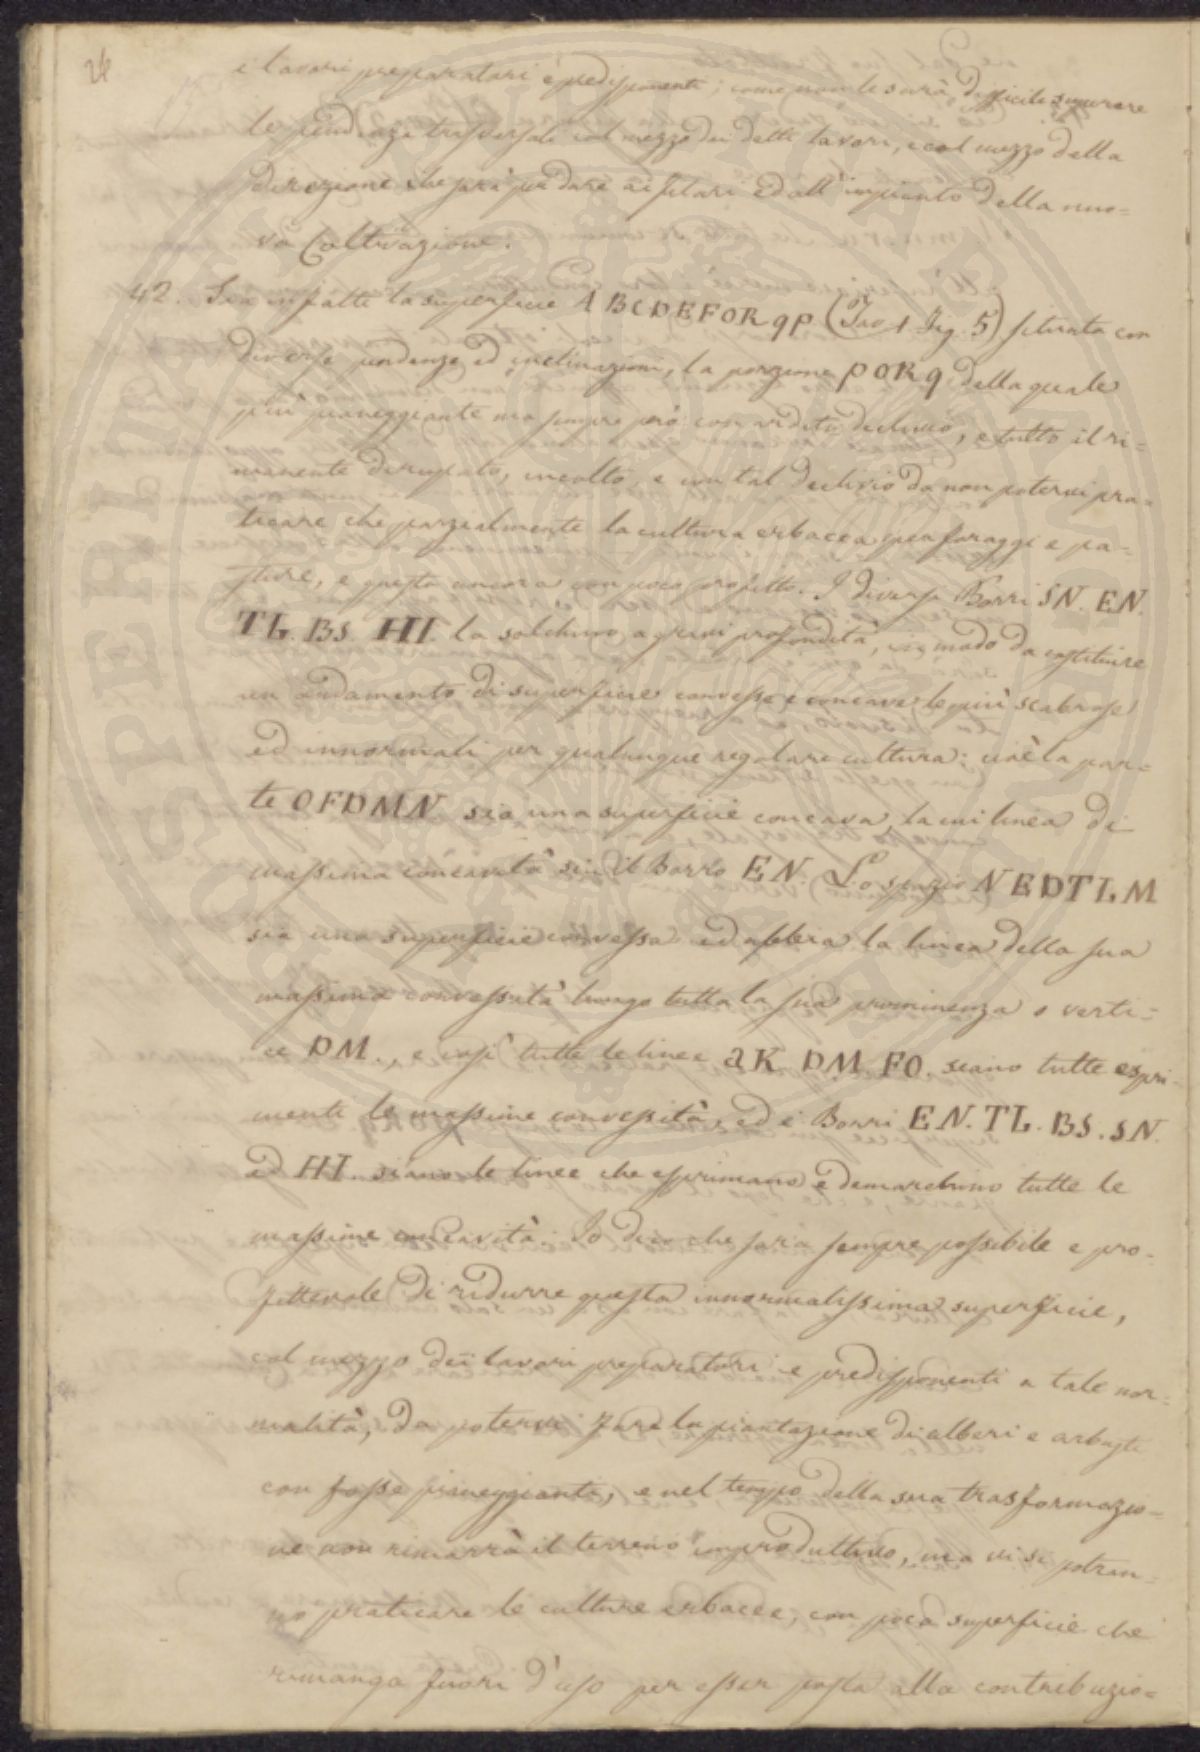 26
e lavori preparatori e predisponenti; come non le sarà difficile superare
le pendenze trasversali col mezzo dei detti lavori, e col mezzo della
direzione che sarà per dare ai filari ed all'impianto della nuo=
va Coltivazione.
42. Sia infatti la superficie A BCDEFORqP (Tav 1 Fig. 5) situata con
diverse pendenze ed inclinazioni, la porzione PORq della quale
più pianeggiante ma sempre però con ardito declivio, e tutto il ri=
manente dirupato, incolto, e con tal declivio da non potervi pra=
ticare che parzialmente la cultura erbacea per foraggi e pa=
sture, e questa ancora con poco profitto. I diversi Borri SN. EN.
TL. BS. HI. la solchino a gravi profondità, in modo da costituire
un andamento di superficie convesse e concave le più scabrose
ed innormali per qualunque regolare cultura; cioè la par=
te OFDMN. sia una superficie concava, la cui linea di
massima concavità sia il Borro EN. Lo spazio NEDTLM
sia una superficie convessa ed abbia la linea della sua
massima convessità lungo tutta la sua prominenza o verti=
ce DM., e così tutte le linee aK DM FO. siano tutte espri=
menti le massime convessità, ed i Borri EN. TL. BS. SN.
ed HI. siano le linee che esprimano e demarchino tutte le
massime concavità. Io dico che sarà sempre possibile e pro=
fittevole di ridurre questa innormalissima superficie,
col mezzo dei lavori preparatori e predisponenti a tale nor=
malità, da potervi fare la piantazione di alberi e arbusti
con fosse pianeggianti, e nel tempo della sua trasformazio=
ne non rimarrà il terreno improduttivo, ma vi si potran=
no praticare le culture erbacee, con poca superficie che
rimanga fuori d'uso per esser posta alla contribuzio=